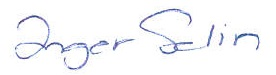 Inger Selin